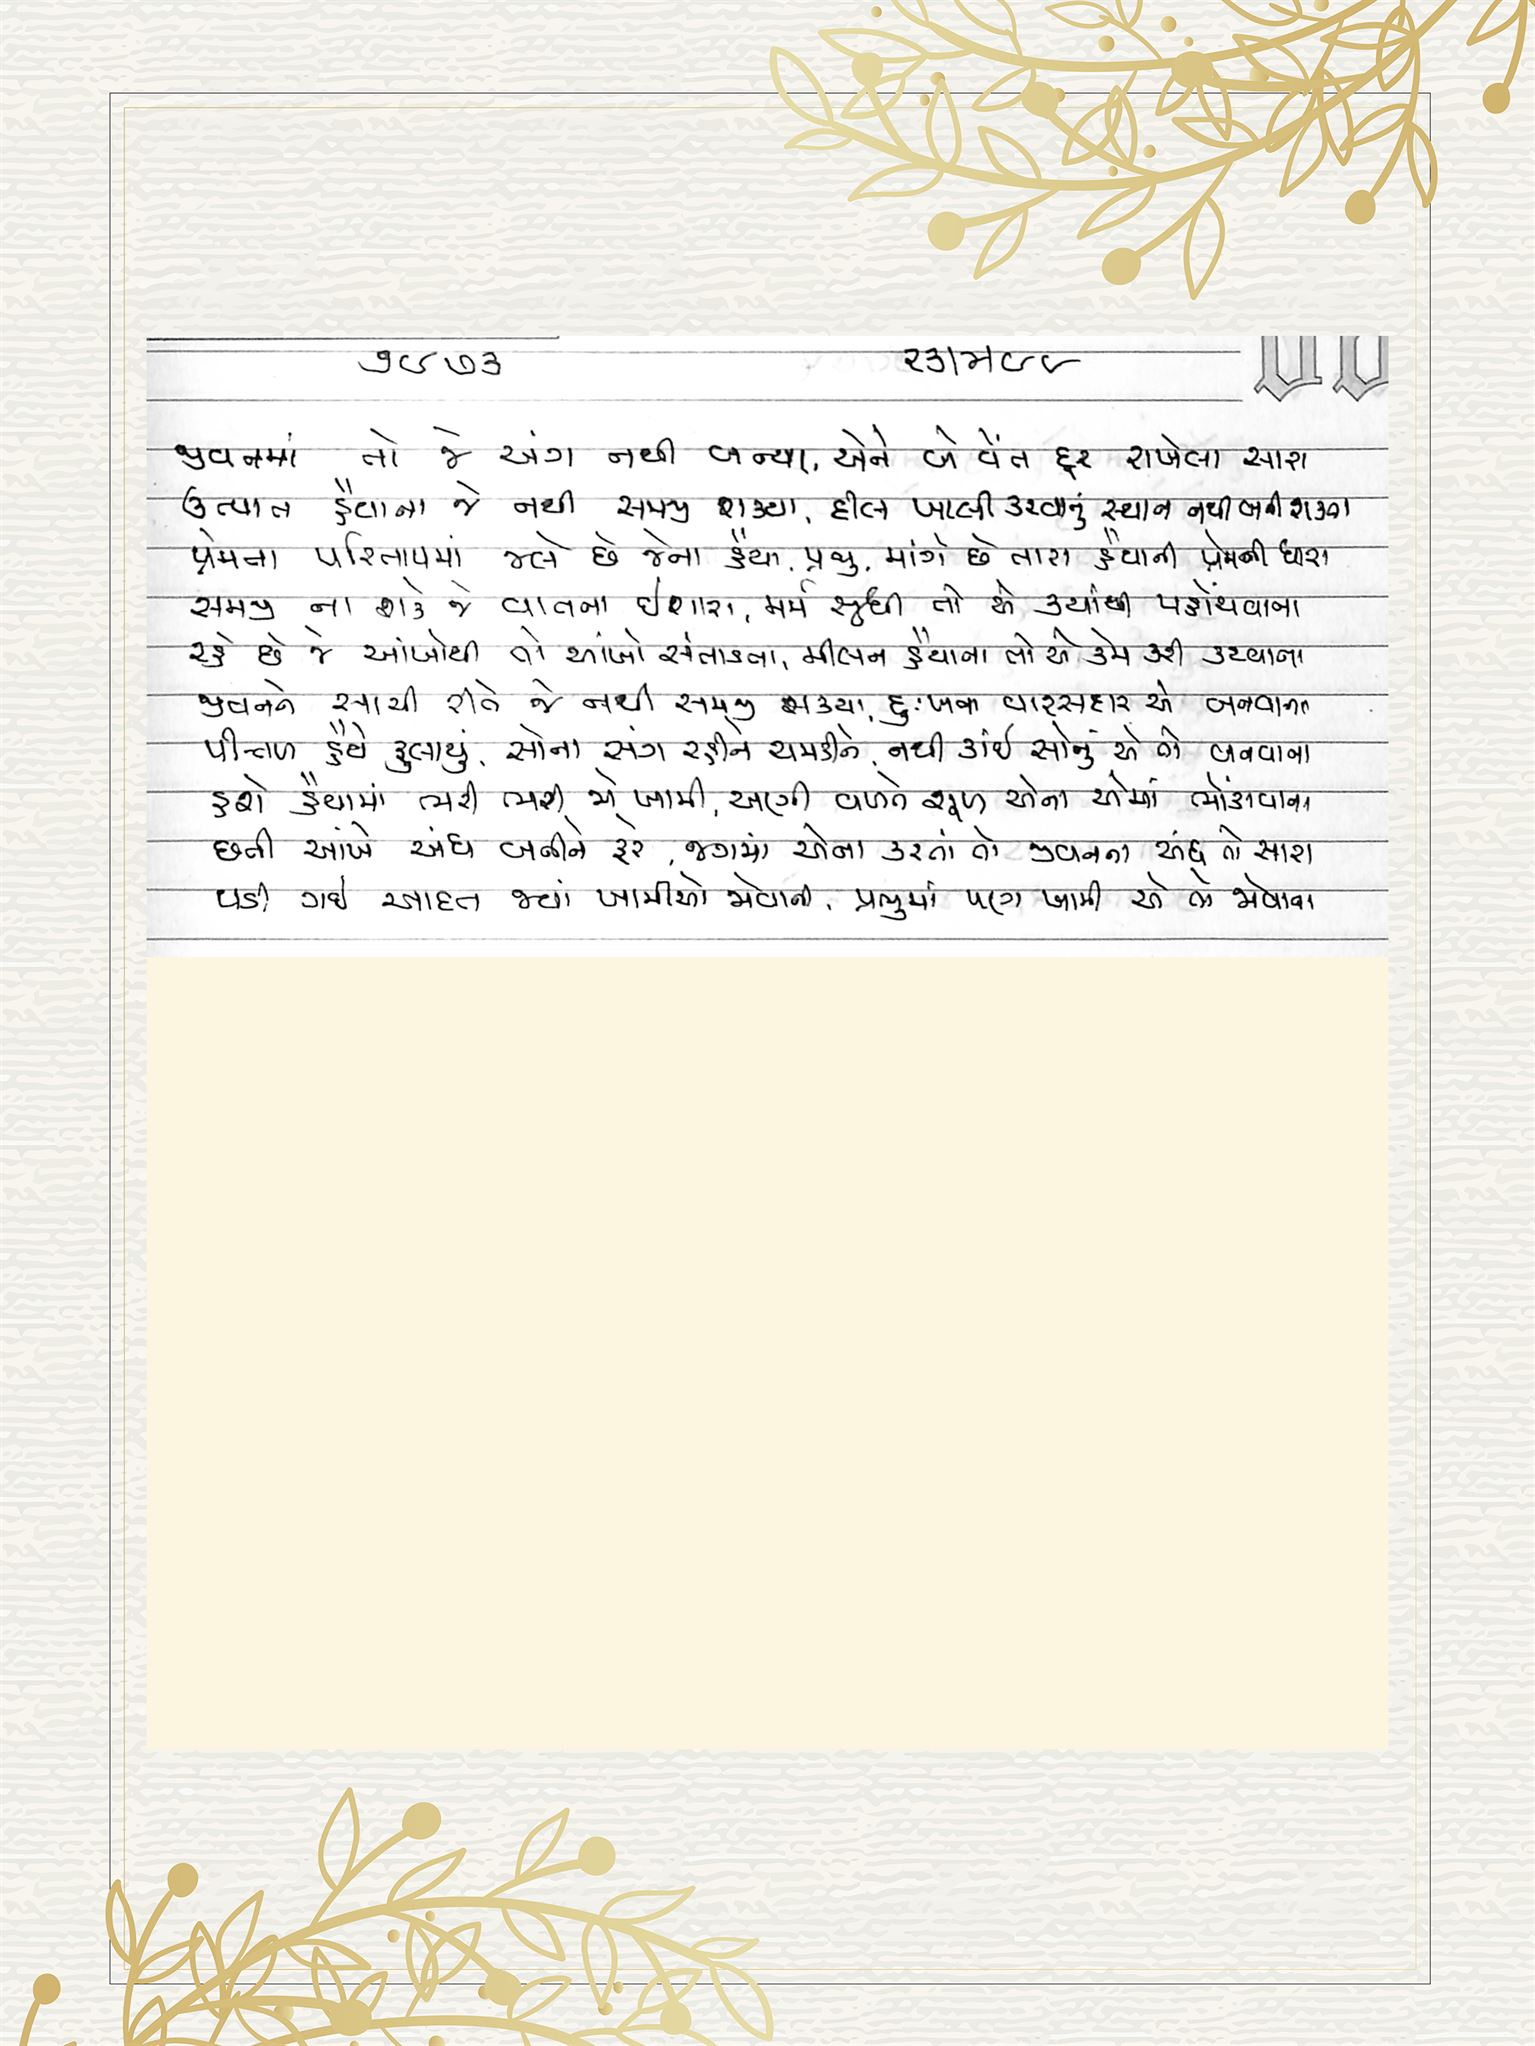 ૭૯૭૩ ૨૩|૫|૯૯
જીવનમાં તો જે અંગ નથી બન્યા, એને બે વેંત દૂર રાખેલા સારા
ઉત્પાત હૈયાના જે નથી સમજી શક્યા, દીલ ખાલી કરવાનું સ્થાન નથી બની શકતા
પ્રેમના પરિતાપમાં જલે છે જેના હૈયા, પ્રભુ, માંગે છે તારા હૈયાની પ્રેમની ધારા
સમજી ના શકે જે વાતના ઈશારા, મર્મ સુધી તો એ ક્યાંથી પહોંચવાના
રહે છે જે આંખોથી તો આંખો સંતાડતા, મીલન હૈયાના તો એ કેમ કરી કરવાના
જીવનને સાચી રીતે જે નથી સમજી શક્યા, દુઃખના વારસદાર એ બનવાના
પીત્તળ હૈયે ફુલાયું, સોના સંગ રહીને ચમકીને, નથી કાંઈ સોનું એ તો બનવાના
હશે હૈયામાં ભરી ભરી જો ખામી, અણી વખતે શૂળ એના એમાં ભોંકાવાના
છતી આંખે અંધ બનીને ફરે, જગમાં એના કરતાં તો જીવનના અંધ તો સારા
પડી ગઈ આદત જ્યાં ખામીઓ જોવાની, પ્રભુમાં પણ ખામી એ તો જોવાના